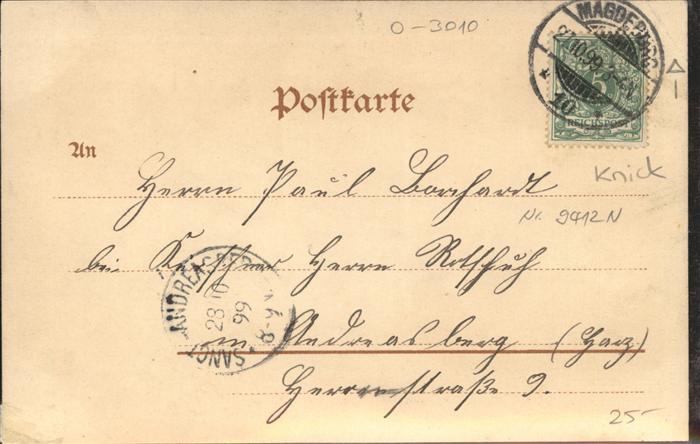 O-3010
MAGDEBURG
27.10.99
10
5
REICHSPOST
Postkarte
An
Knick
Herrn Paul Borchardt
Nr. 9412 N
bei Herrn Rotschuh
SANCT ANDREASBERG
28 10
99
8-9 V
in Andreasberg (Harz)
Herrenstraße 9.
25-